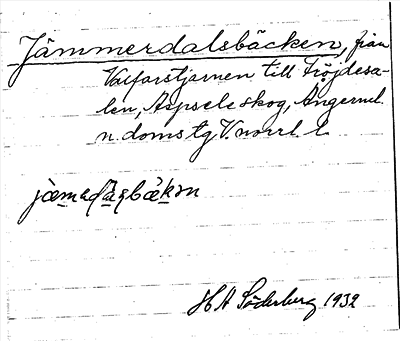 Jämmerdalsbäcken, från
Valfarstjärnen till Tröjdesa-
len, Aspsele skog, Ångerml.
n. doms tg V.norrl. l.
H A Söderberg 1932